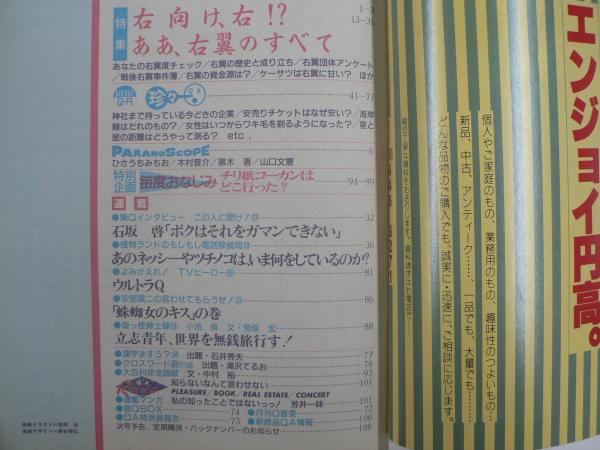 特集
右向け、右!?
1~3
13~31
ああ、右翼のすべて
あなたの右翼度チェック/右翼の歴史と成り立ち/右翼団体アンケート
/戦後右翼事件簿/右翼の資金源は?/ケーサツは右翼に甘い? ほか
珍々QA 41~71
神社まで持っている今どきの企業/安売りチケットはなぜ安い?/海岸
線はだれのもの?/女性はいつからワキ毛を剃るようになった?/星と
星の距離はどうやって測る? etc.
PARANOSCOPE 6
ひさうちみちお/木村晋介/黒木 香/山口文憲
特別企画
毎度おなじみ チリ紙コーカンはどこ行った? 94~99
連載
●インタビュー この人に聞け! 32
石坂 啓「ボクはそれをガマンできない」
●怪物ランドのもしもし電話探偵局 36
あのネッシーやツチノコは、いま何をしているのか?
●よみがえれ! TVヒーロー 81
ウルトラQ
●安部譲二の言わせてもらうぜ!③ 86
「蜘蛛女のキス」の巻
小池 泉 文・荒俣 宏 88
立志青年、世界を無銭旅行す!
●漢字ますう? 出題・石井秀夫 77
●クロスワード遊ing 出題・滝沢てるお 78
●大百科完全読破 文・中村 裕 93
知らないなんて言わせない 101
PLEASURE/BOOK/REAL ESTATE/CONCERT
●連載マンガ 私の知ったことではないっっ! 芳井一味 101
●BOX 74 ●月刊Q書奏 72
●QA特派員報告 73 ●新商品QA情報 106
次号予告、定期購読・バックナンバーのお知らせ 108
エンジョイ円高。
個人やご家庭のもの、業務用のもの、趣味性のつよいもの…
新品、中古、アンティーク……、一品でも、大量でも……
どんな品物のご購入でも、誠実に・迅速に、ご相談に応じます。